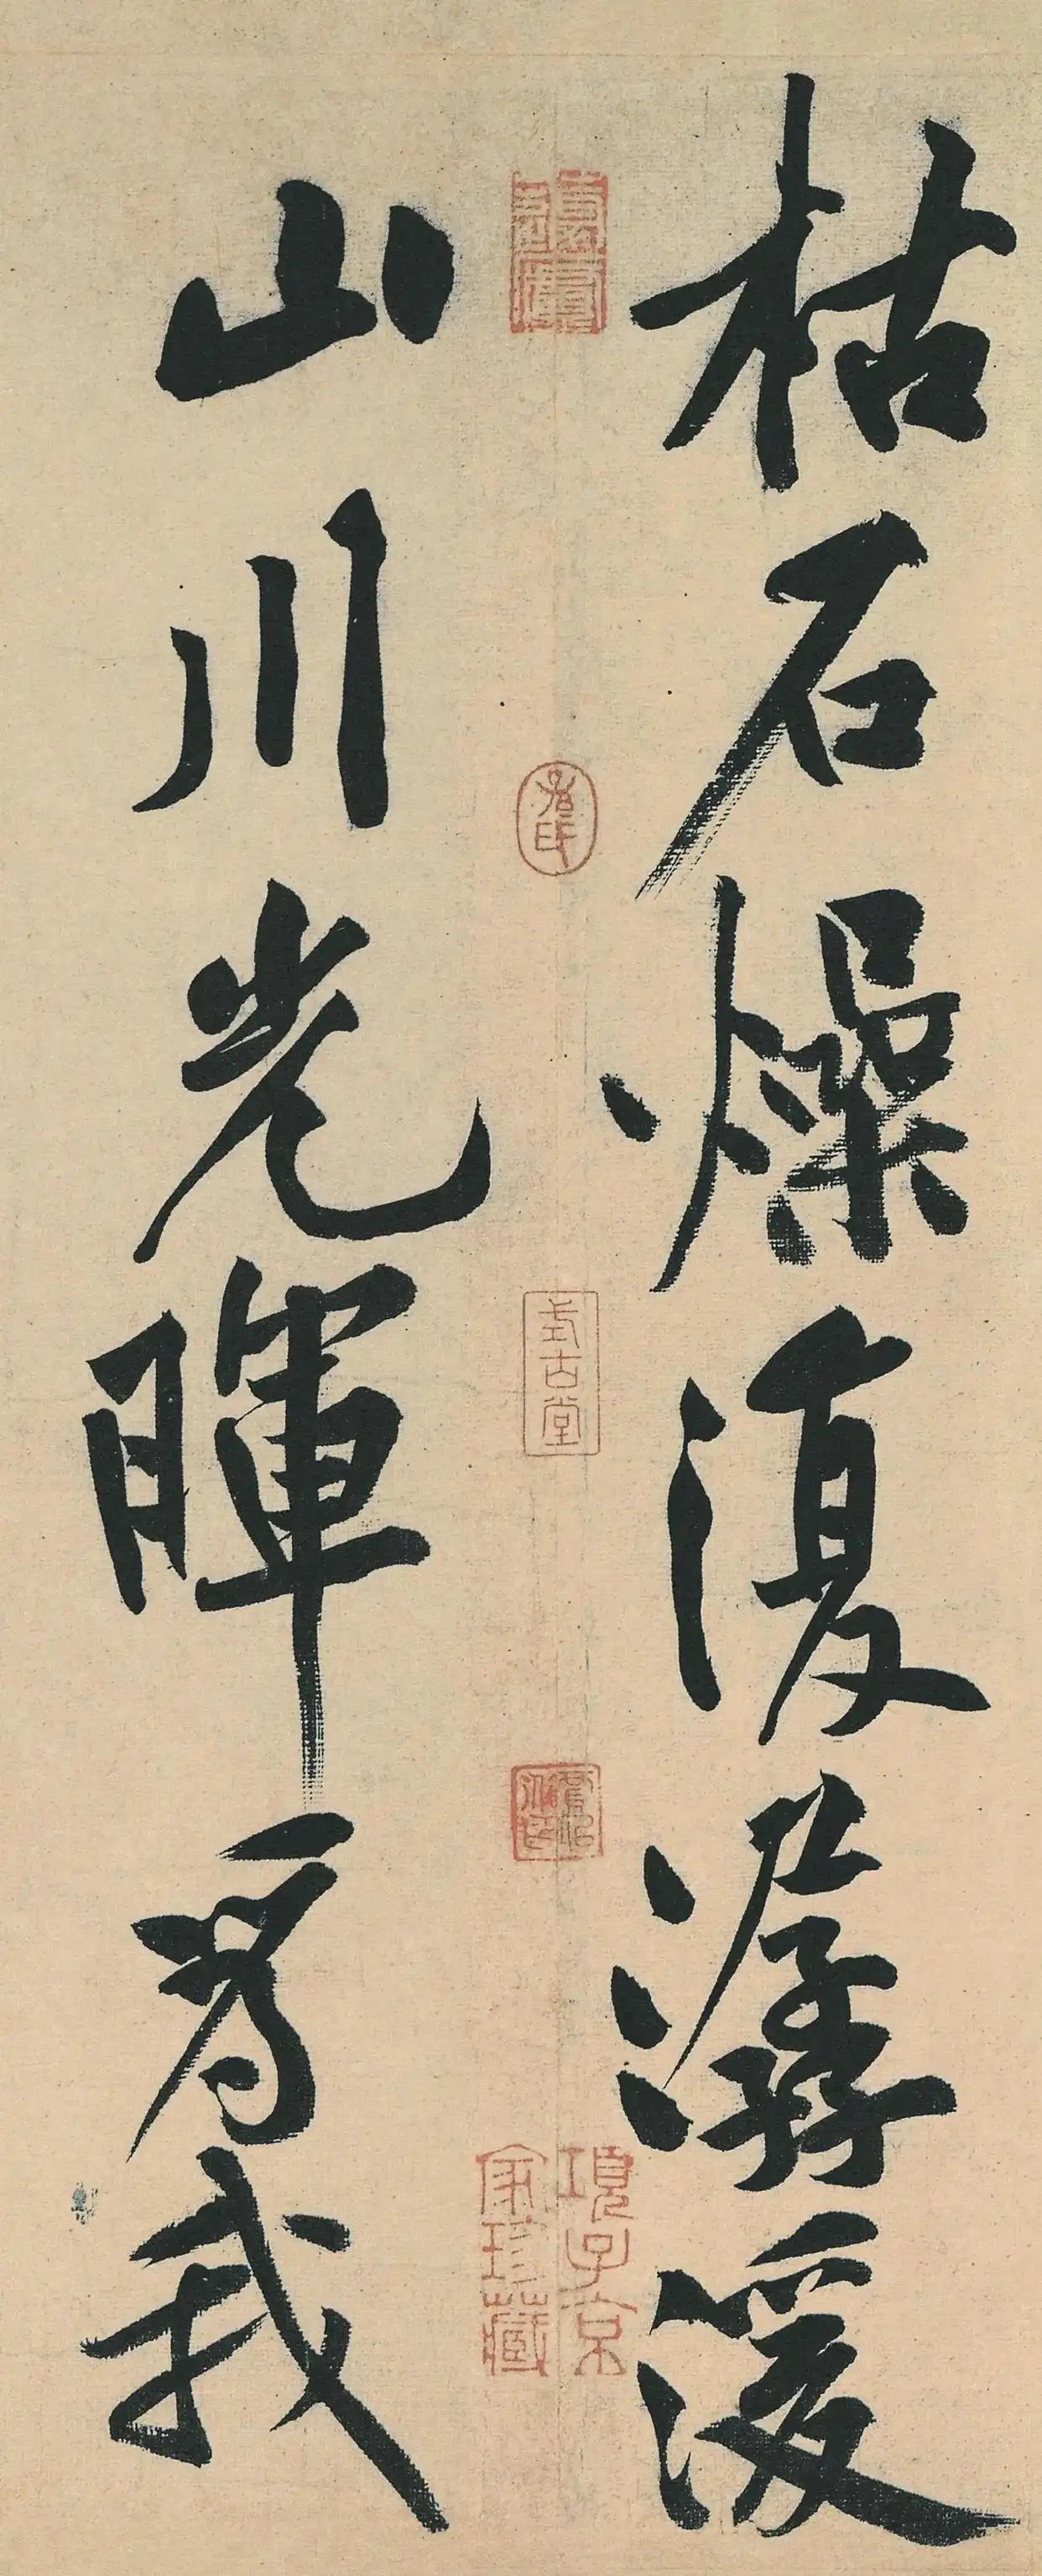 枯石燥復潺湲
山川光暉為我
式古堂
項子京
家珍藏